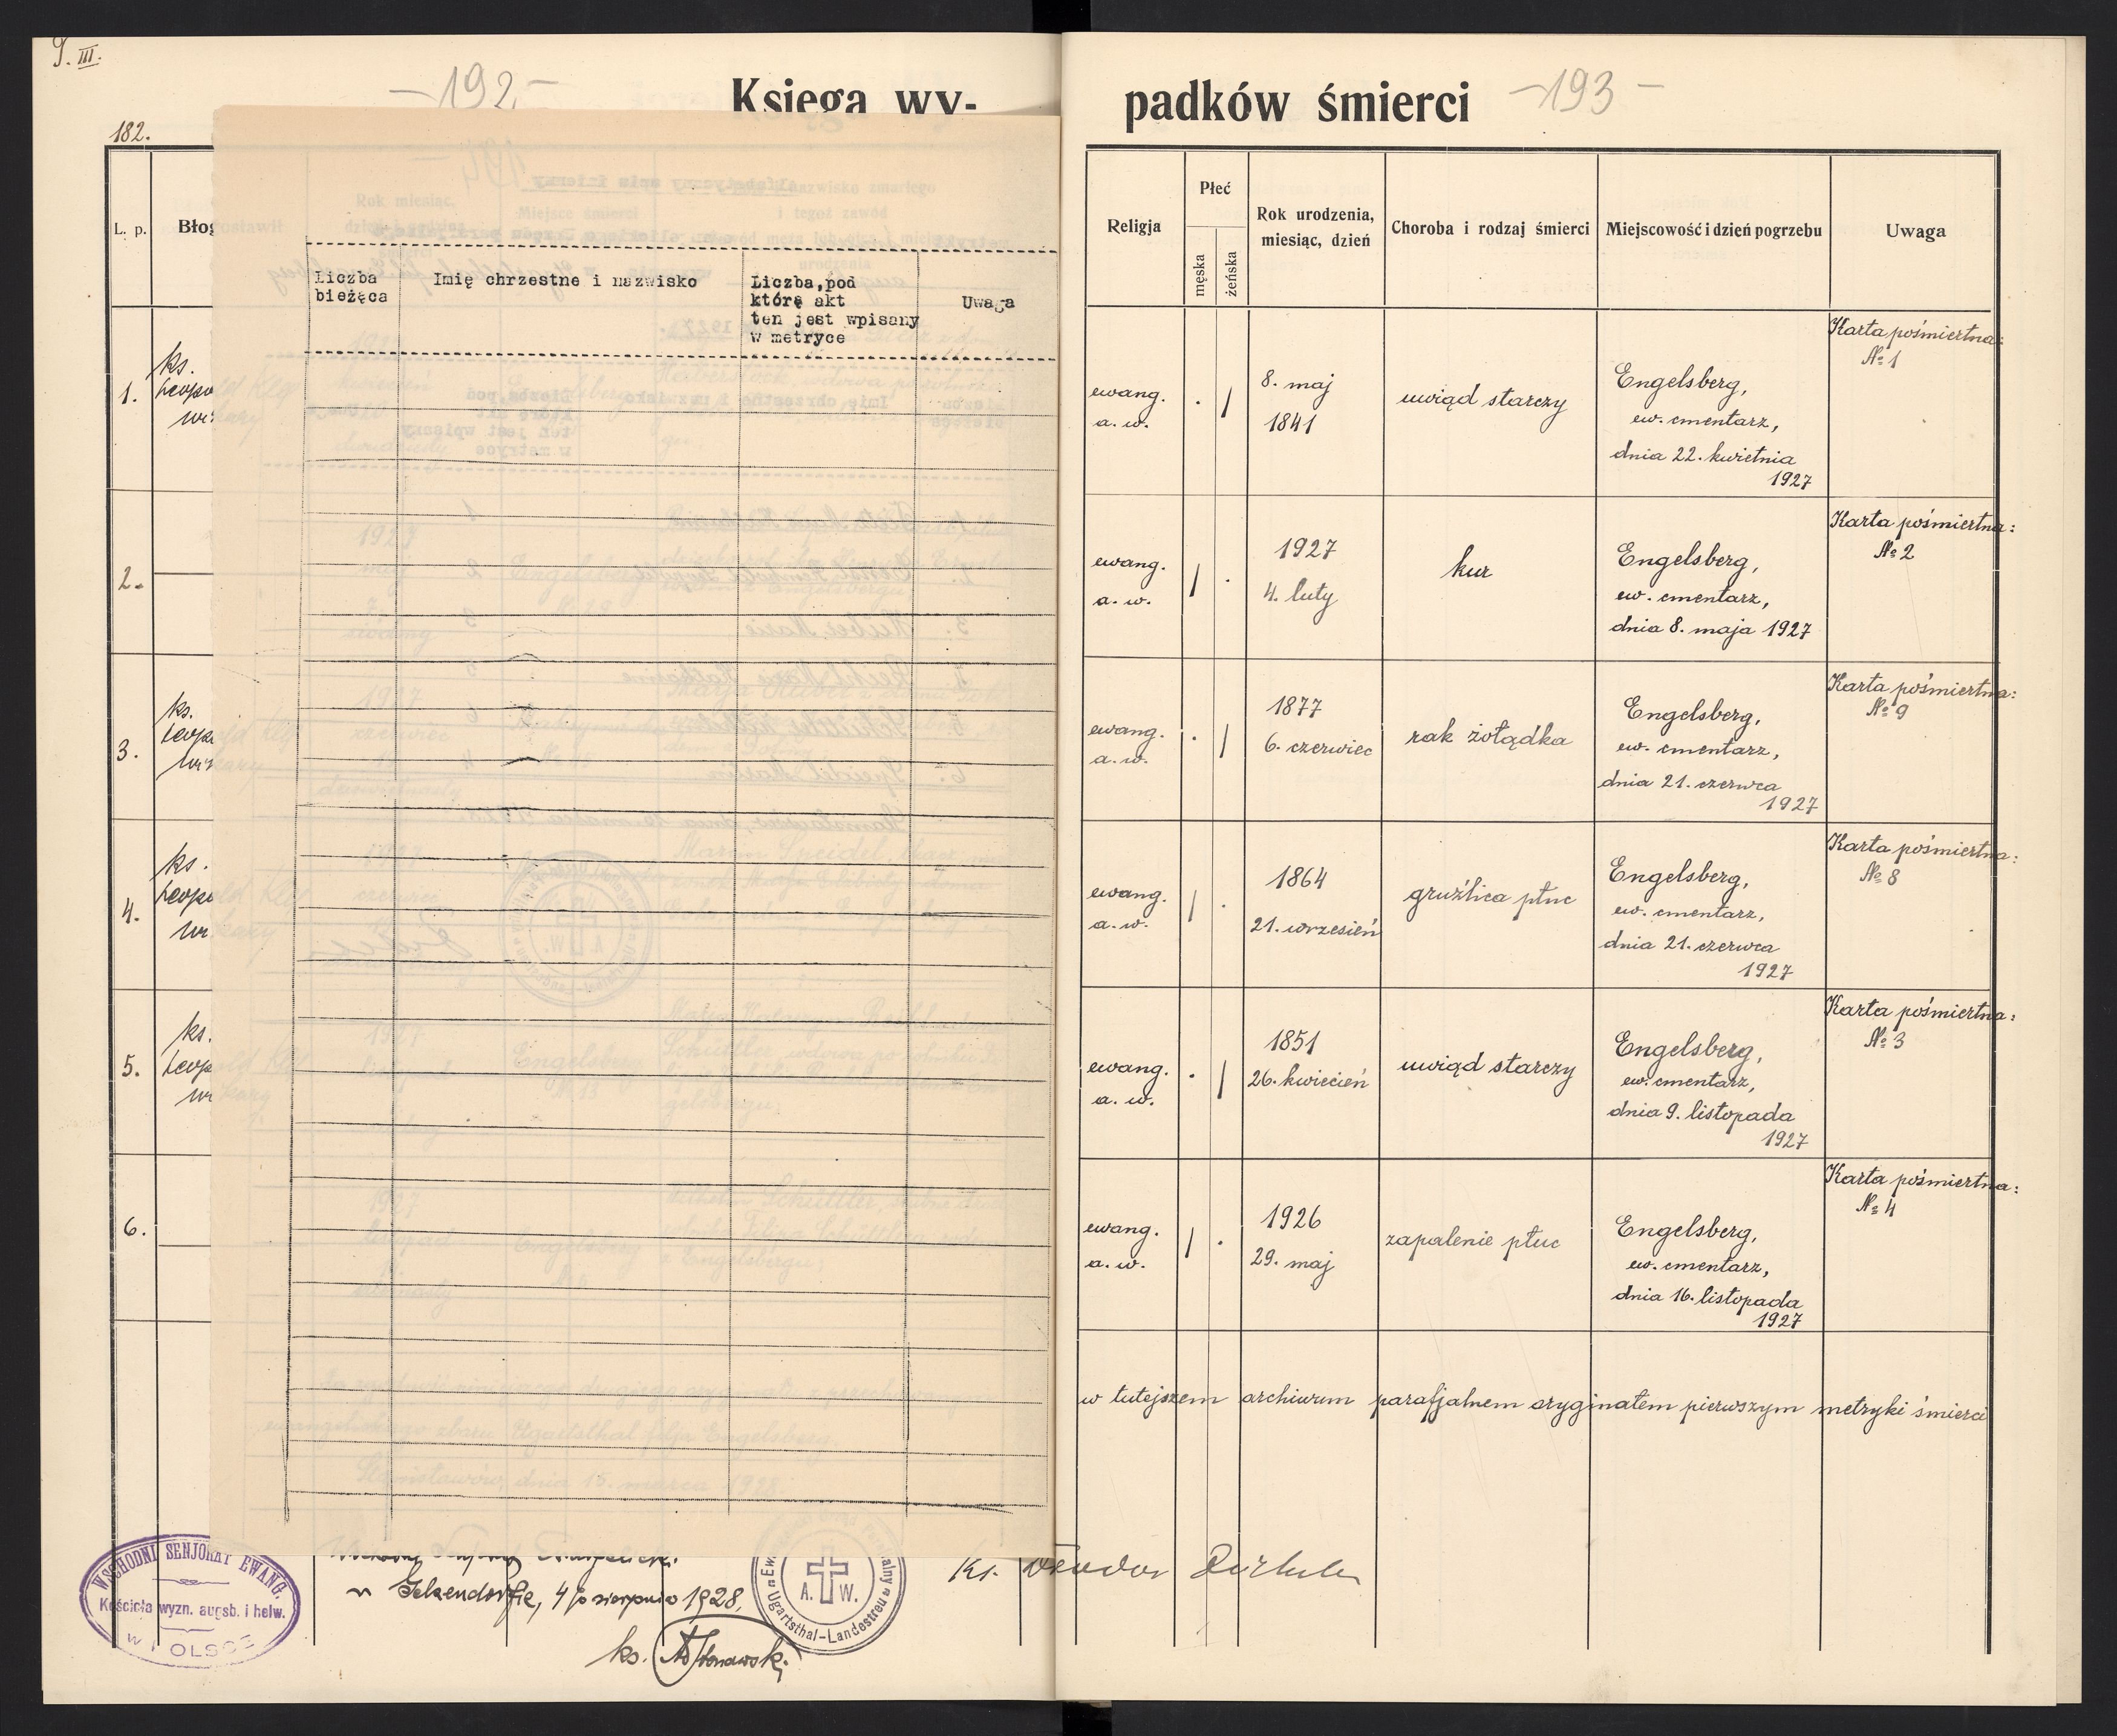 T. III.
-192.-
Księga wy-
182.
L. p.
Błog
1.
ks.
Leopo
2.
3.
ks.
4.
ks.
5.
ks.
6.
Liczba
bieżąca
Imię chrzestne i nazwisko
Liczba,pod
którę akt
ten jest wpisany
w metryce
Uwaga
WSCHODNI SENJORAT EWANG.
Kościoła wyzn. augsb. i helw.
w POLSCE
4/o sierpnia 1928.
A. W.
Ugartsthal-Landestreu
ks.
padków śmierci
-193-
Religja
Płeć
męska
żeńska
Rok urodzenia,
miesiąc, dzień
Choroba i rodzaj śmierci
Miejscowość i dzień pogrzebu
Uwaga
ewang.
a. w.
. /
8. maj
1841
uwiąd starczy
Engelsberg,
ew. cmentarz,
dnia 22. kwietnia
1927
Karta pośmiertna:
№ 1
ewang.
a. w.
/ .
1927
4. luty
kur
Engelsberg,
ew. cmentarz,
dnia 8. maja 1927
Karta pośmiertna:
№ 2
ewang.
a. w.
. /
1877
6. czerwiec
rak żołądka
Engelsberg,
ew. cmentarz,
dnia 21. czerwca
1927
Karta pośmiertna:
№ 9
ewang.
a. w.
/ .
1864
21. wrzesień
gruźlica płuc
Engelsberg,
ew. cmentarz,
dnia 21. czerwca
1927
Karta pośmiertna:
№ 8
ewang.
a. w.
. /
1851
26. kwiecień
uwiąd starczy
Engelsberg,
ew. cmentarz,
dnia 9. listopada
1927
Karta pośmiertna:
№ 3
ewang.
a. w.
/ .
1926
29. maj
zapalenie płuc
Engelsberg,
ew. cmentarz,
dnia 16. listopada
1927
Karta pośmiertna:
№ 4
w tutejszem archiwum parafjalnem oryginałem pierwszym metryki śmierci